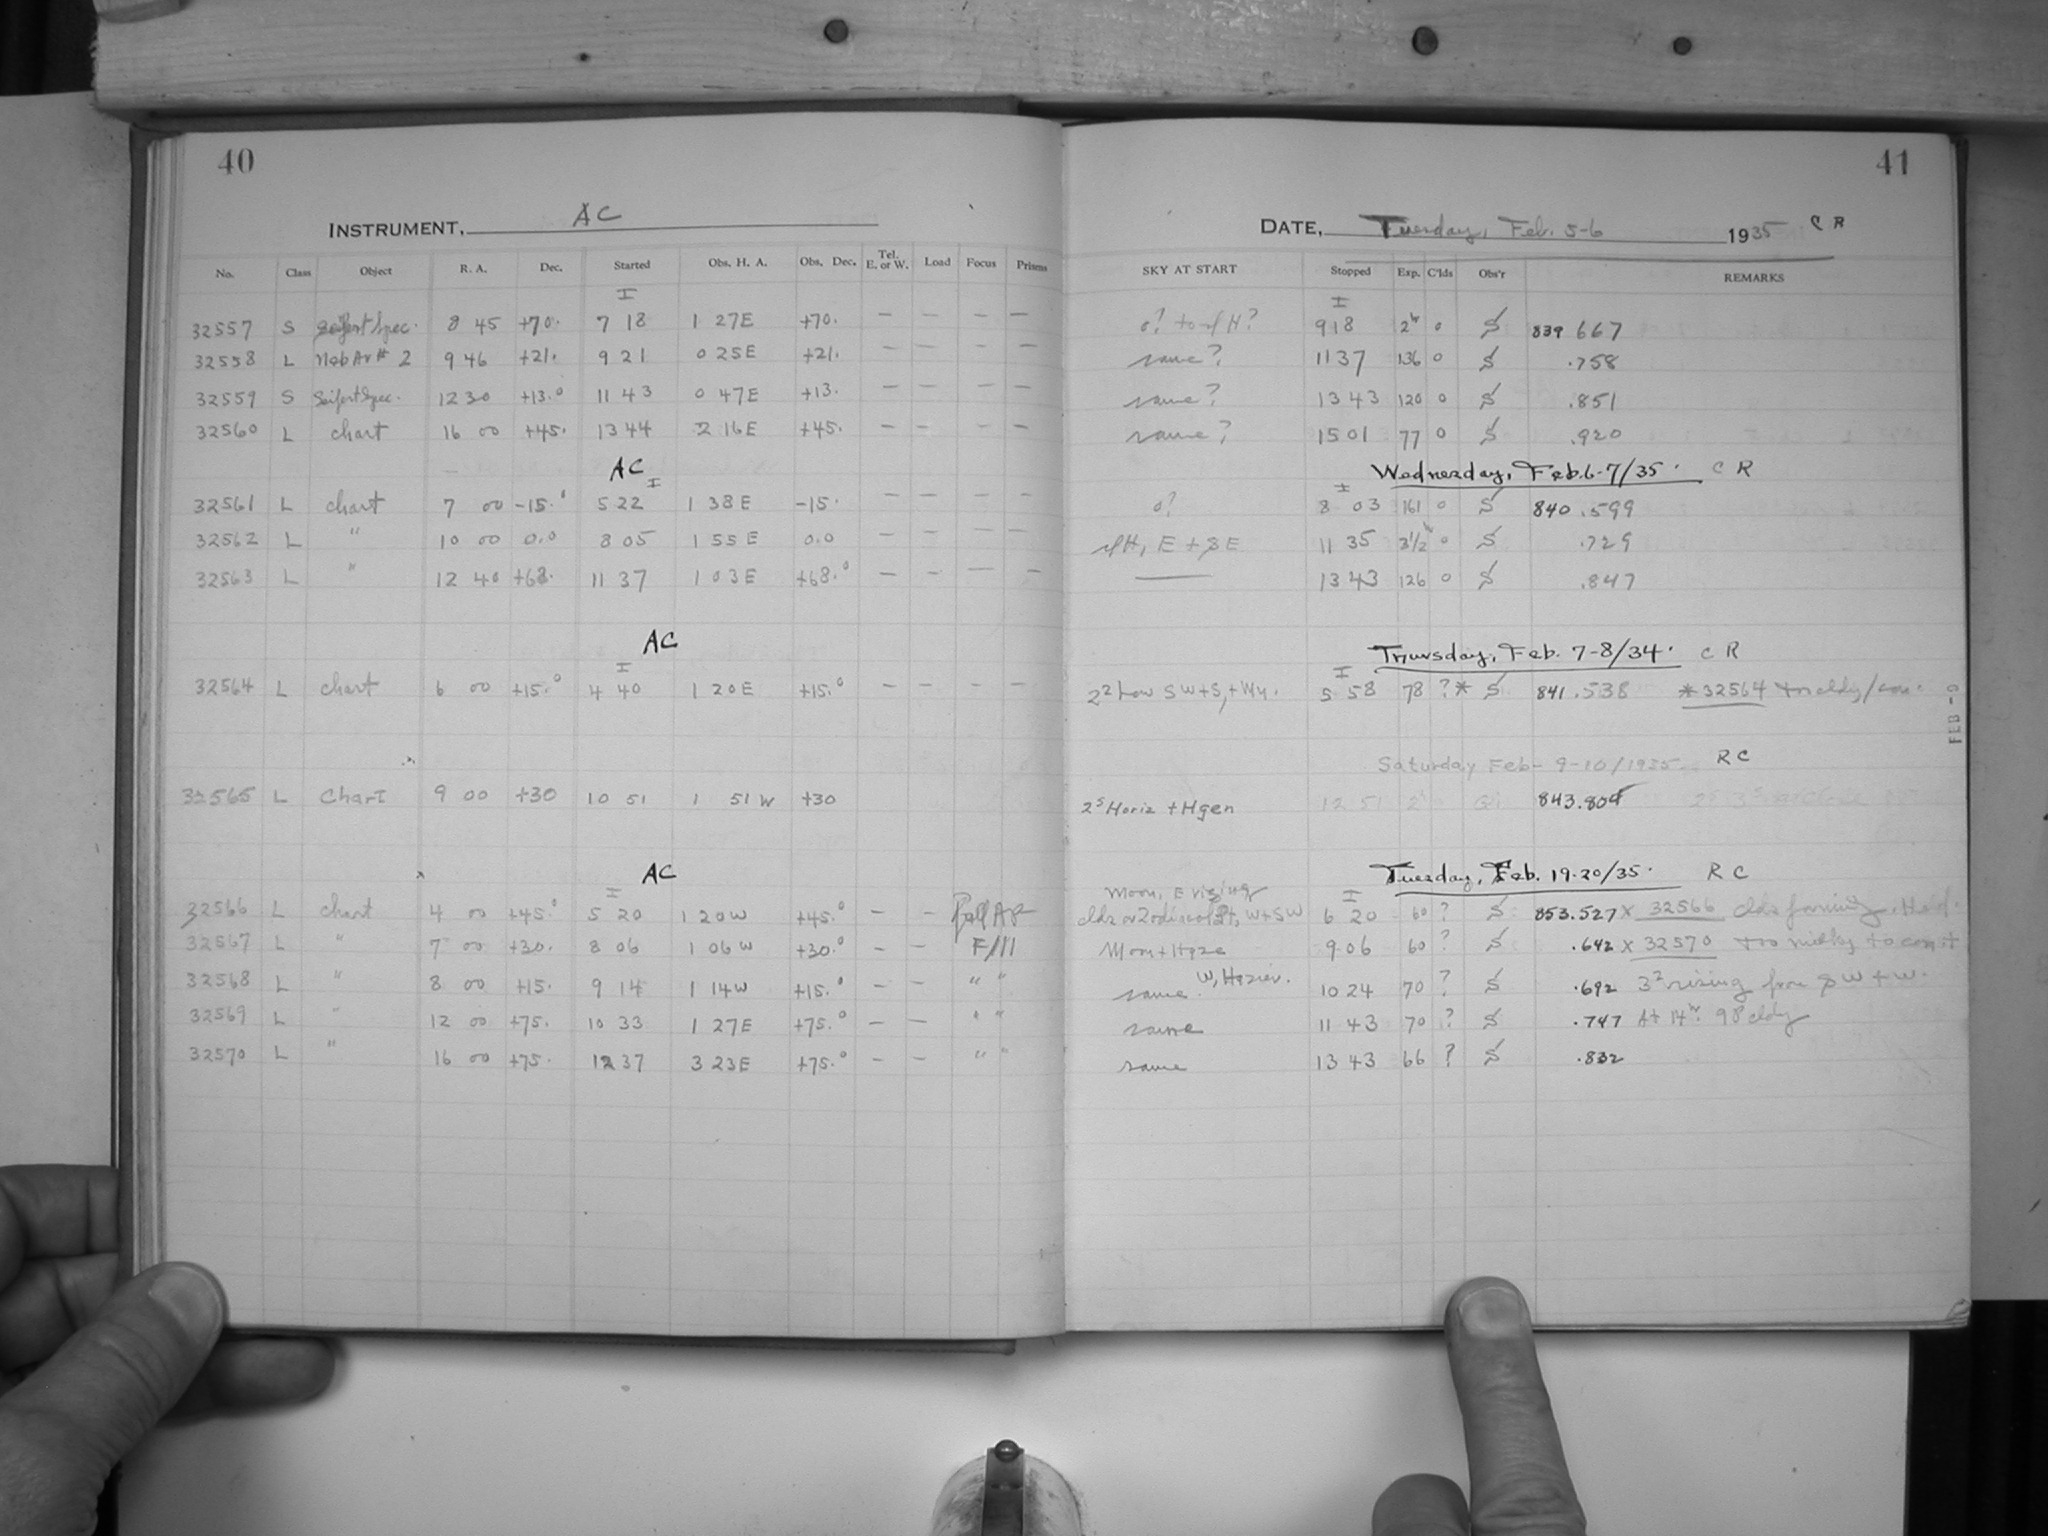 40
INSTRUMENT, AC
No. Class Object R. A. Dec. Started Obs. H. A. Obs. Dec. Tel. E. or W. Load Focus Prisms
I
32557 S Seifert Spec. 8 45 +70. 7 18 1 27E +70. — — — —
32558 L Neb Ar # 2 9 46 +21. 9 21 0 25E +21. — — — —
32559 S Seifert Spec. 12 30 +13.0 11 43 0 47E +13. — — — —
32560 L chart 16 00 +45. 13 44 2 16E +45. — — — —
AC
I
32561 L chart 7 00 -15.° 5 22 1 38E -15. — — — —
32562 L " 10 00 0.0 8 05 1 55E 0.0 — — — —
32563 L " 12 40 +68. 11 37 1 03E +68.° — — — —
AC
I
32564 L chart 6 00 +15.° 4 40 1 20E +15.° — — — —
32565 L Chart 9 00 +30 10 51 1 51 W +30
AC
I
32566 L chart 4 00 +45.° 5 20 1 20W +45.° — —
32567 L " 7 00 +30. 8 06 1 06W +30.° — — F/11
32568 L " 8 00 +15. 9 14 1 14W +15.° — — " "
32569 L " 12 00 +75. 10 33 1 27E +75.° — — " "
32570 L " 16 00 +75. 12 37 3 23E +75.° — — " "
41
DATE, Tuesday, Feb. 5-6 1935 C R
SKY AT START Stopped Exp. C'lds Obs'r REMARKS
I
9 18 2h 0 S 839 667
same? 11 37 136 0 S .758
same? 13 43 120 0 S .851
same? 15 01 77 0 S .920
Wednesday, Feb. 6-7/35. C R
I
0? 8 03 161 0 S 840.599
H, E + SE 11 35 3 1/2h 0 S .729
—— 13 43 126 0 S .847
Thursday, Feb. 7-8/34. C R
I
low SW + S, + Wy. 5 58 78 ?* S 841.538 *32564 cldy
FEB -9
Saturday Feb- 9-10/1935 R C
2s Horiz + H gen 12 51 2h 843.804
Tuesday, Feb. 19-20/35. R C
Moon, E rising I
clds or Zodiacal Lt, W + SW 6 20 60 ? S 853.527 x 32566 clds forming.
Moon + Haze 9 06 60 ? S .642 x 32570 too milky to
same. W, Hazier. 10 24 70 ? S .692 rising from SW + W.
same 11 43 70 ? S .747 At 14h. cldy
same 13 43 66 ? S .832